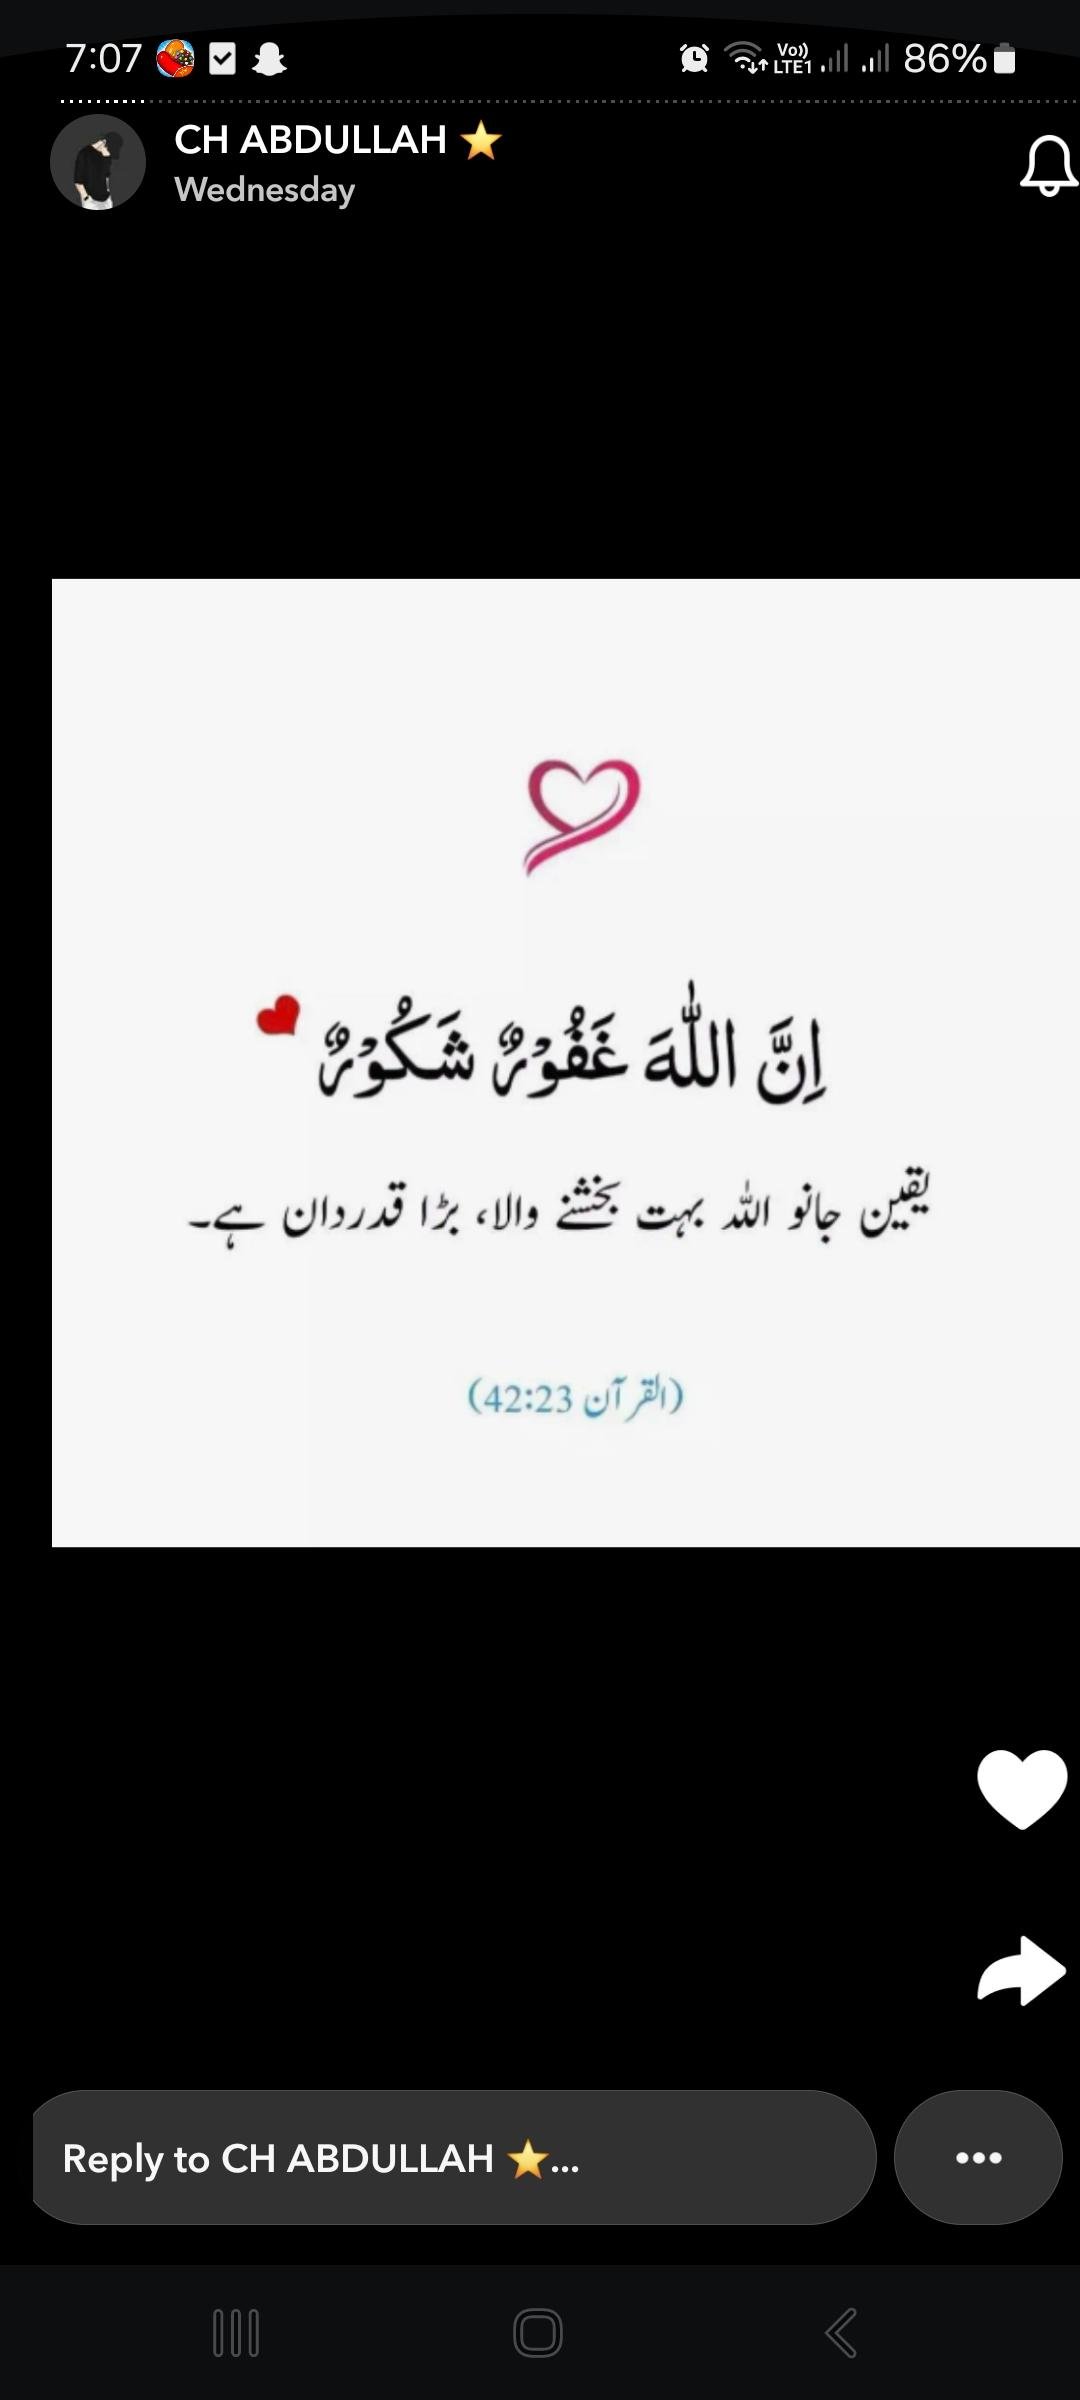 7:07 Vo)) LTE1 86%
CH ABDULLAH ⭐
Wednesday
اِنَّ اللّٰهَ غَفُوْرٌ شَكُوْرٌ
یقین جانو اللہ بہت بخشنے والا، بڑا قدردان ہے۔
(القرآن 42:23)
Reply to CH ABDULLAH ⭐...